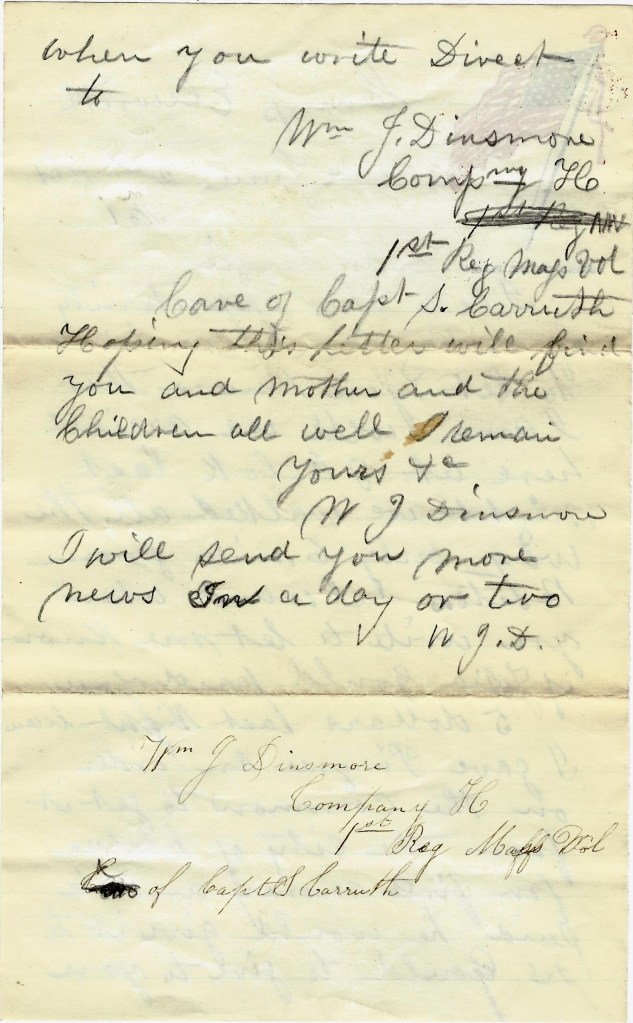 When you write Direct
to
Wm J. Dinsmore
Compny H
1st Reg
1st Reg Mass Vol
Care of Capt S. Carruth
Hoping this letter will find
you and mother and the
Children all well I remain
Yours &c
W J Dinsmore
I will send you more
news In a day or two
W J. D.
Wm J Dinsmore
Company H
1st Reg Mass Vol
of Capt S Carruth